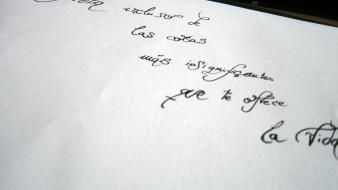 incluso de
las cosas
más insignificantes
que te ofrece
la vida